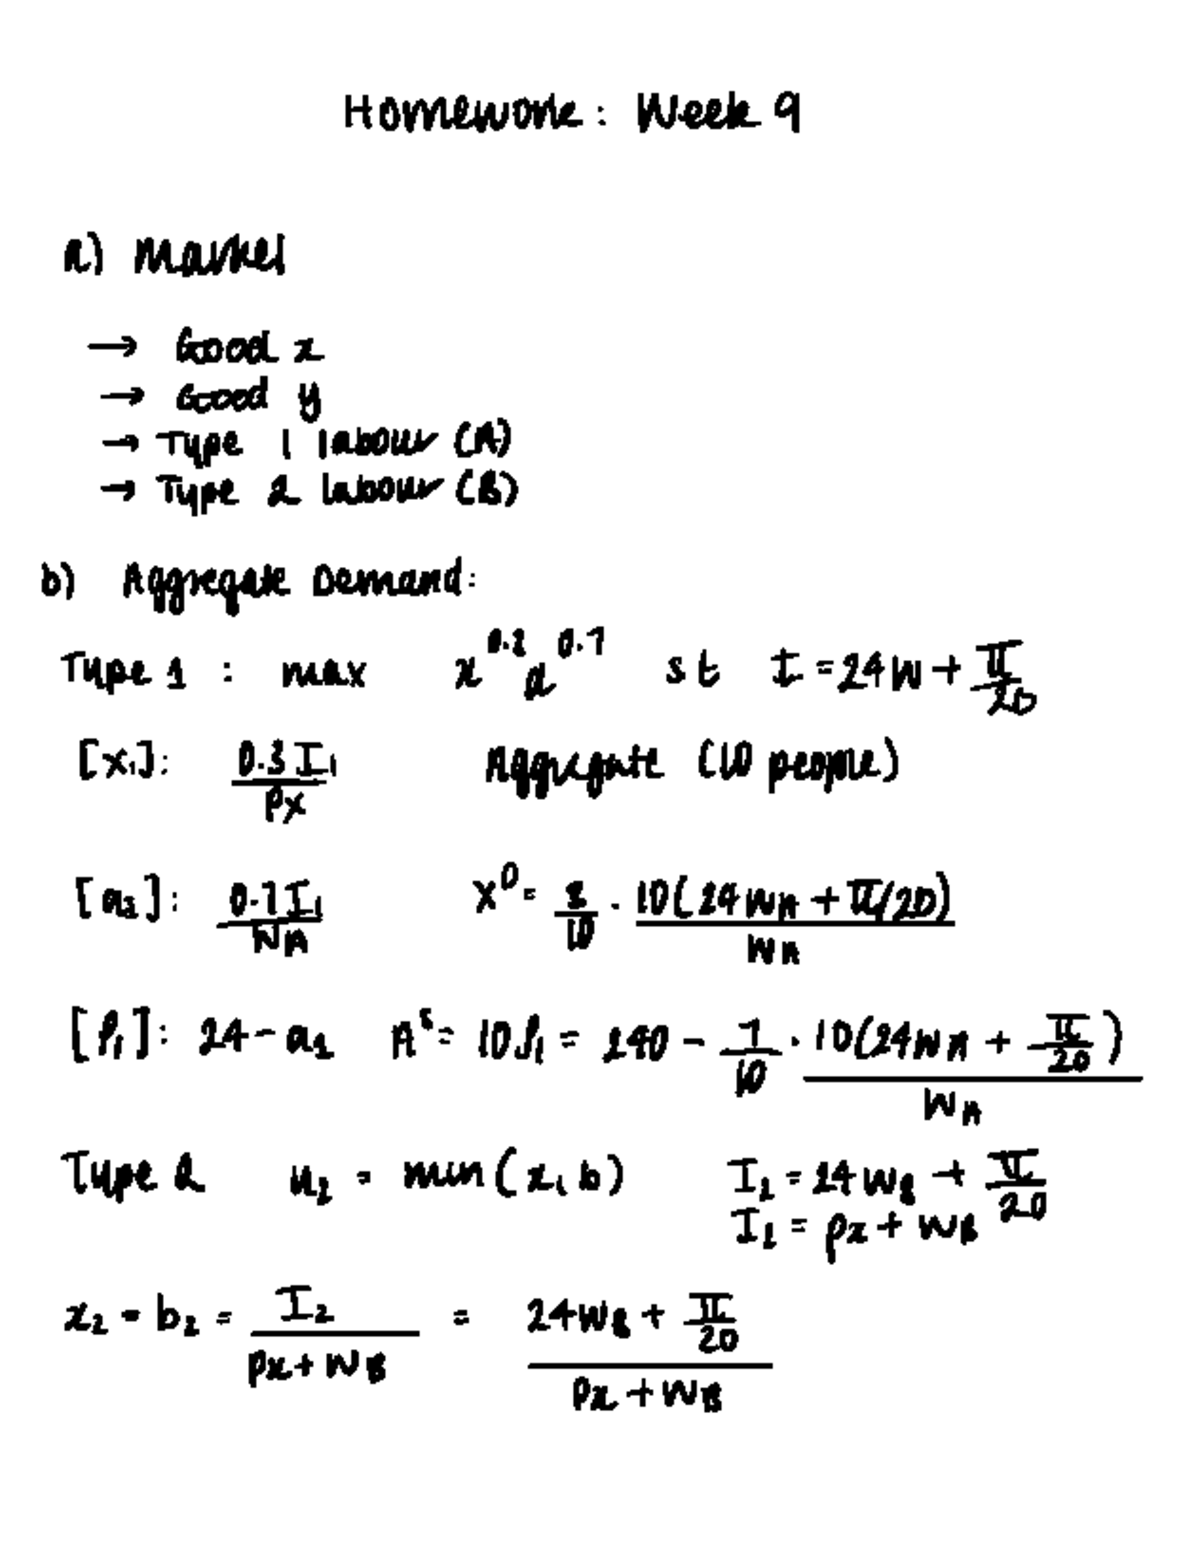 Homework: Week 9
a) Market
→ Good x
→ Good y
→ Type 1 labour (A)
→ Type 2 labour (B)
b) Aggregate Demand:
Type 1 : max x^0.3 a^0.7 st I = 24w + π/20
[x₁]: 0.3 I₁ / Px Aggregate (10 people)
[a₁]: 0.7 I₁ / WA X^D = 3/10 · 10(24WA + π/20) / WA
[l₁]: 24 - a₁ A^s = 10l₁ = 240 - 7/10 · 10(24WA + π/20) / WA
Type 2 u₂ = min(x, b) I₂ = 24WB + π/20
I₂ = px + WB
x₂ = b₂ = I₂ / (Px + WB) = (24WB + π/20) / (Px + WB)